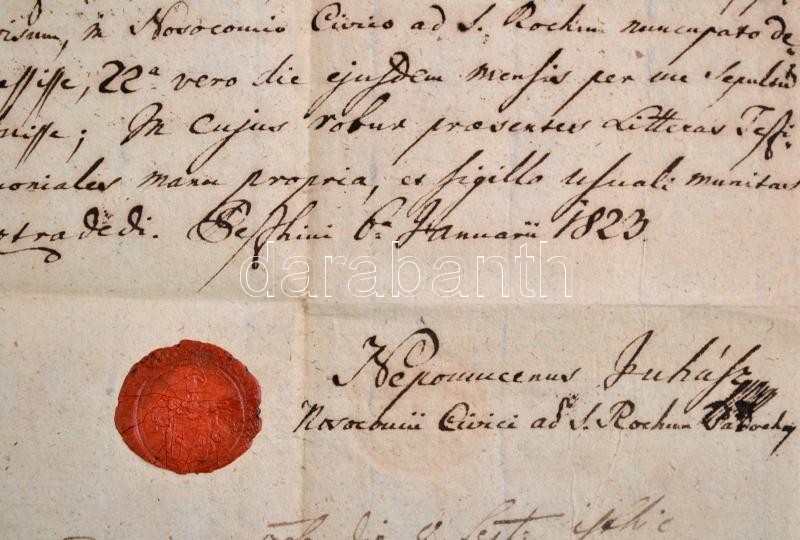 visum, in Nosocomio Civico ad S. Rochum nuncupato de-
cessisse, 22ª vero die ejusdem mensis per me Sepultum
fuisse; In cujus robur praesentes Litteras Testi-
moniales manu propria, et sigillo usuali munitas
extradedi. Pesthini 6ª Januarii 1823.
darabanth
Nepomucenus Juhász
Nosocomii Civici ad S. Rochum Parochus